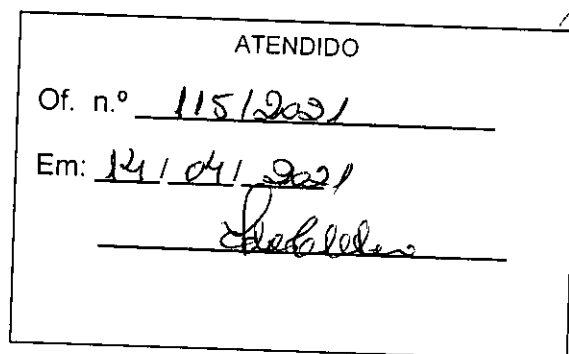 ATENDIDO
Of. n.º 115/2021
Em: 14/04/2021